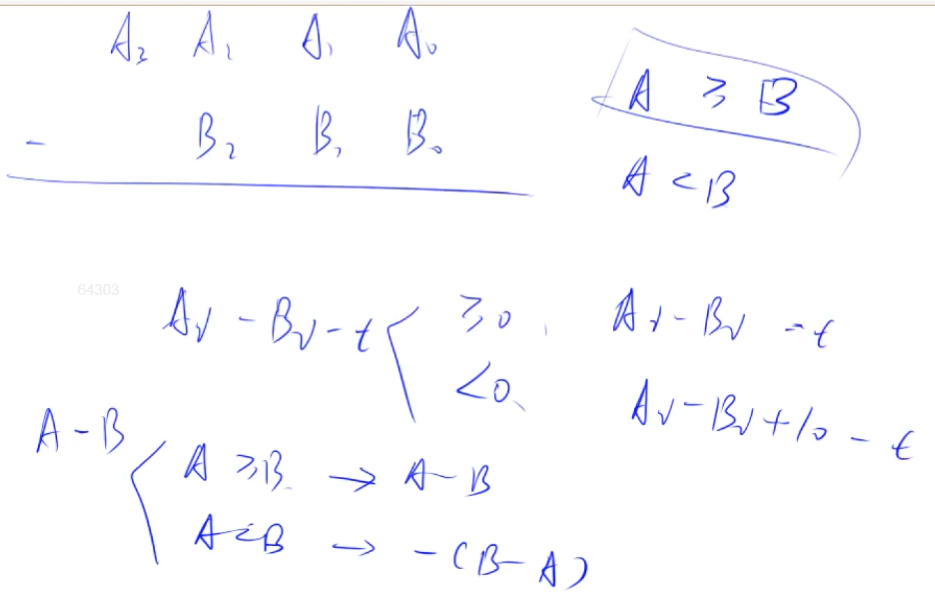 A₃ A₂ A₁ A₀
- B₂ B₁ B₀
A ≥ B
A < B
64303
Aᵢ - Bᵢ - t
≥0, Aᵢ - Bᵢ - t
<0, Aᵢ - Bᵢ + 10 - t
A - B
A ≥ B → A - B
A < B → -(B - A)